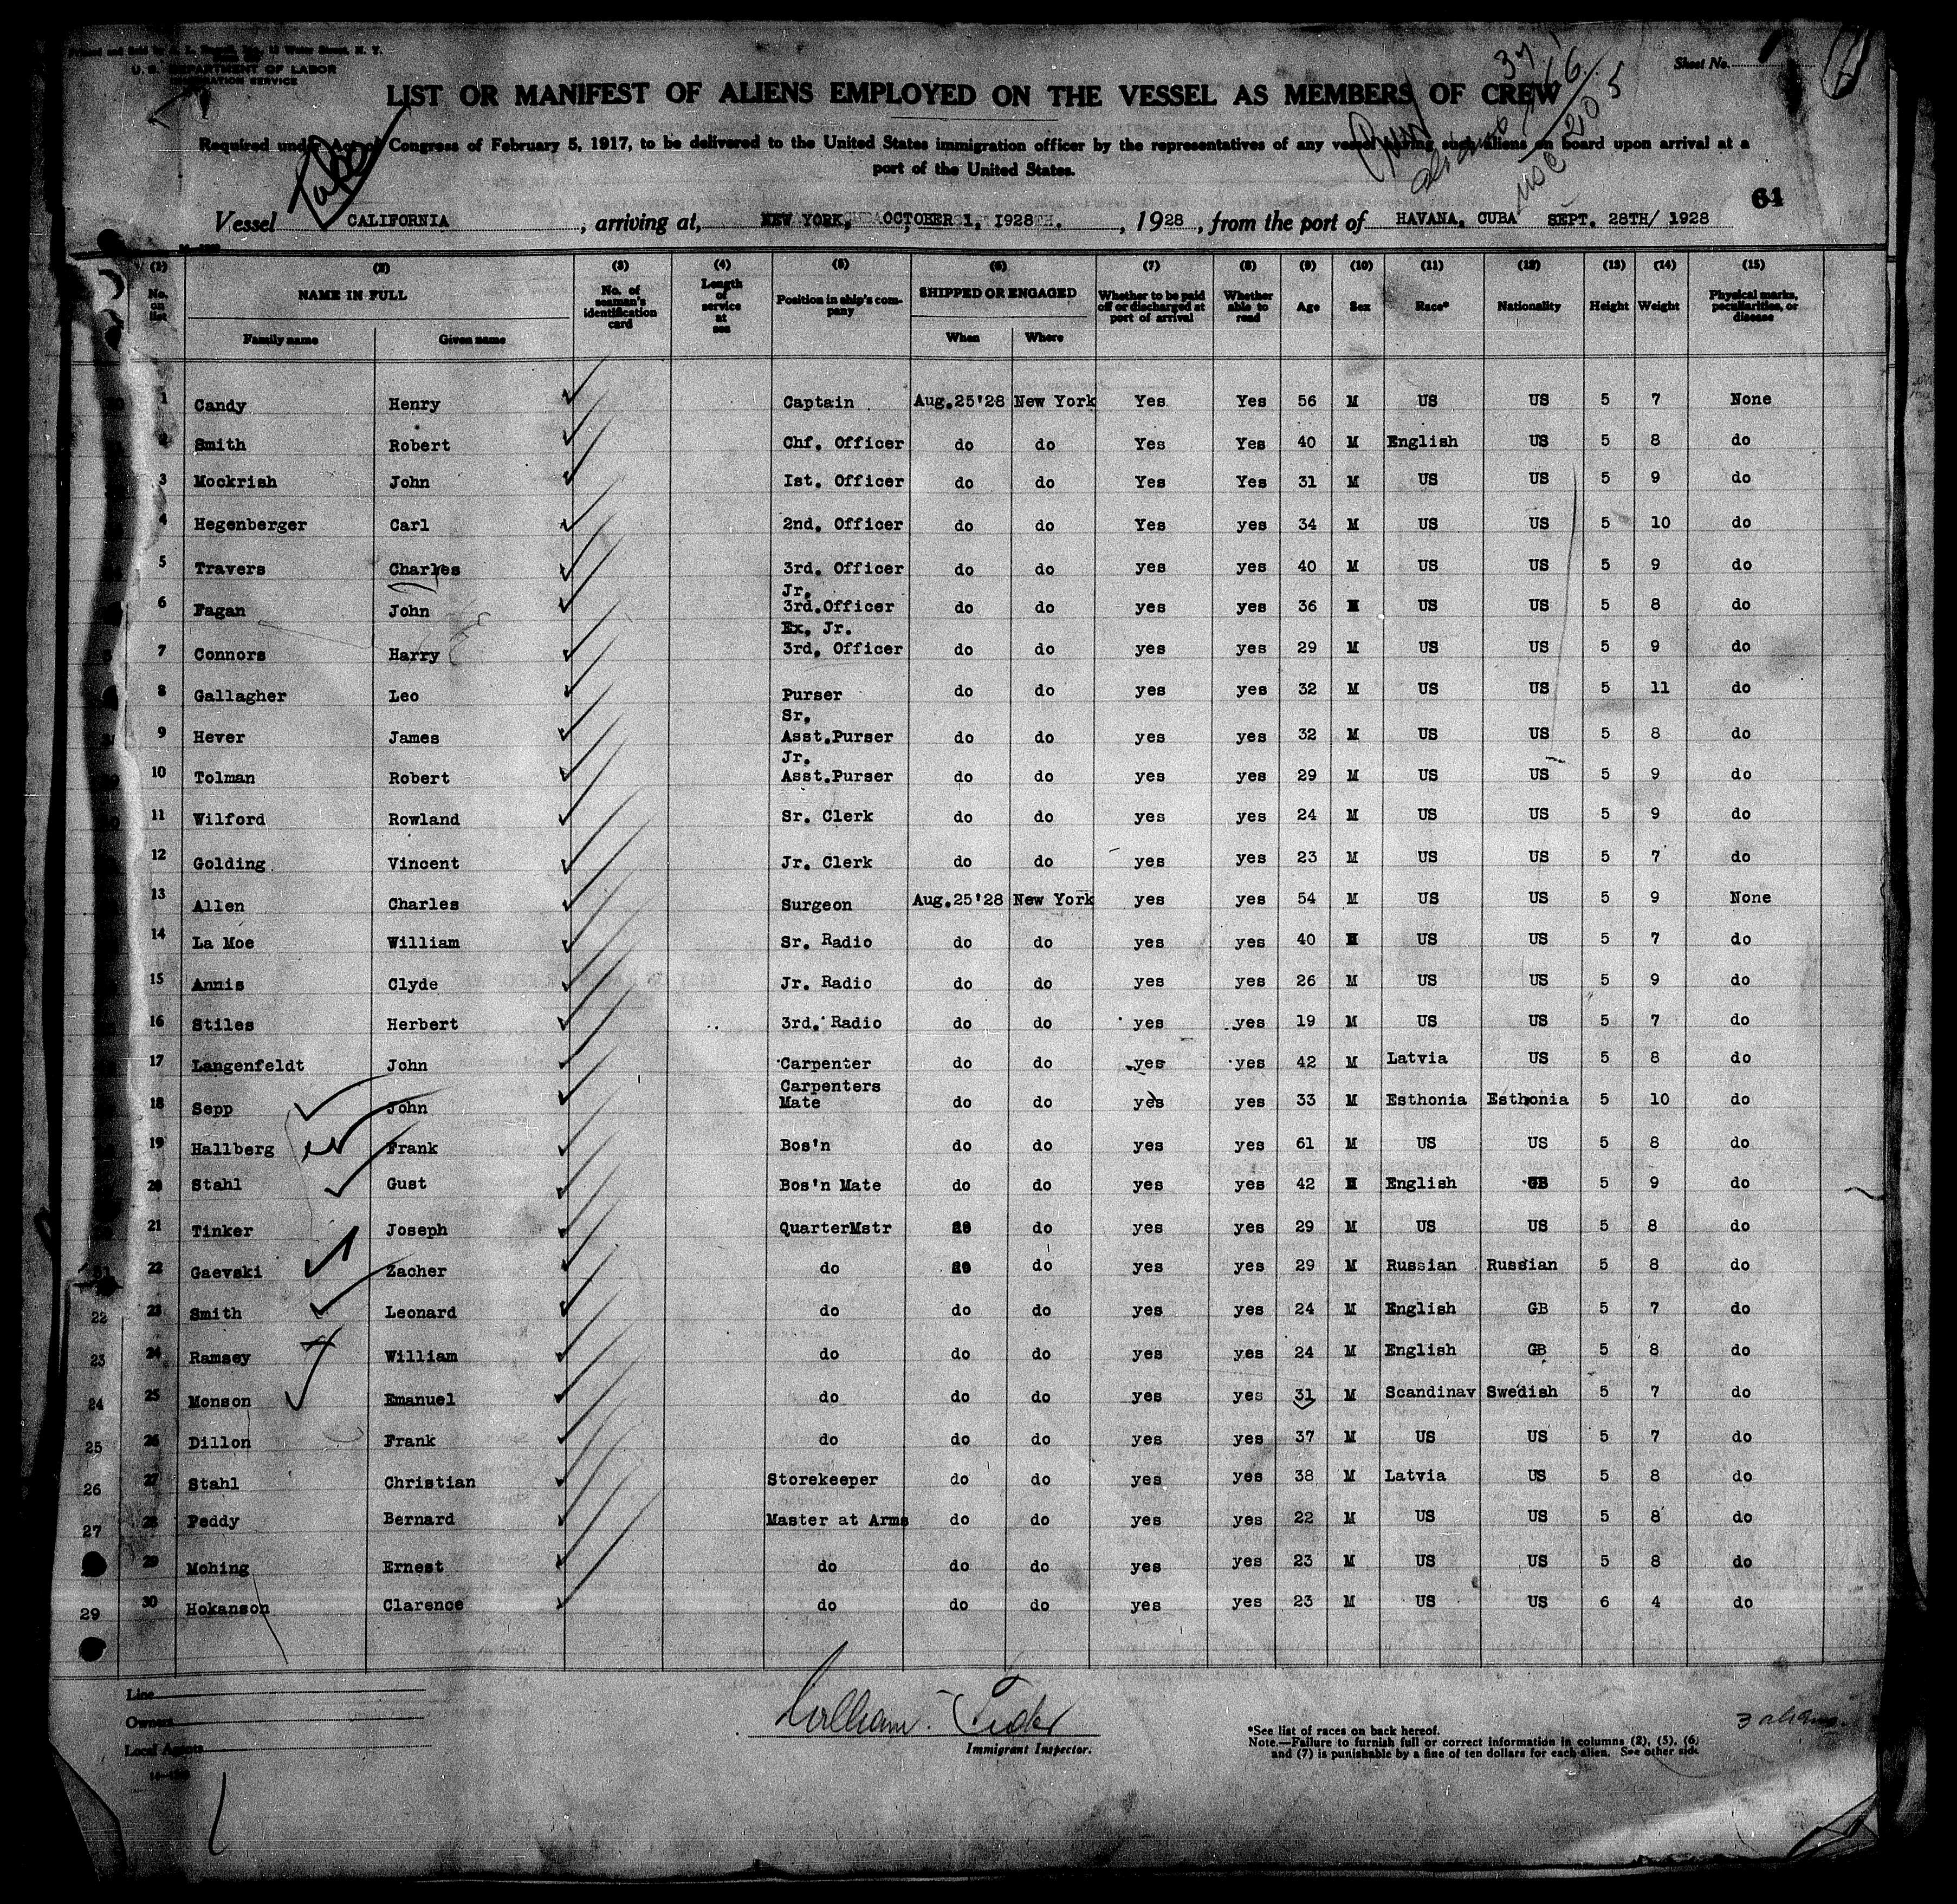 U. S. DEPARTMENT OF LABOR
IMMIGRATION SERVICE
Sheet No. 1
LIST OR MANIFEST OF ALIENS EMPLOYED ON THE VESSEL AS MEMBERS OF CREW
Required under Act of Congress of February 5, 1917, to be delivered to the United States immigration officer by the representatives of any vessel having such aliens on board upon arrival at a
port of the United States.
64
Vessel CALIFORNIA, arriving at, NEW YORK, OCTOBER 1, 1928, 1928, from the port of HAVANA, CUBA SEPT. 28TH/ 1928
(1) (2) (3) (4) (5) (6) (7) (8) (9) (10) (11) (12) (13) (14) (15)
No. on list NAME IN FULL Family name Given name No. of seaman's identification card Length of service at sea Position in ship's company SHIPPED OR ENGAGED When Where Whether to be paid off or discharged at port of arrival Whether able to read Age Sex Race* Nationality Height Weight Physical marks, peculiarities, or disease
1 Candy Henry Captain Aug.25'28 New York Yes Yes 56 M US US 5 7 None
2 Smith Robert Chf. Officer do do Yes Yes 40 M English US 5 8 do
3 Mockrish John Ist. Officer do do Yes Yes 31 M US US 5 9 do
4 Hegenberger Carl 2nd. Officer do do Yes yes 34 M US US 5 10 do
5 Travers Charles 3rd. Officer do do yes yes 40 M US US 5 9 do
6 Fagan John Jr. 3rd.Officer do do yes yes 36 M US US 5 8 do
7 Connors Harry Ex. Jr. 3rd. Officer do do yes yes 29 M US US 5 9 do
8 Gallagher Leo Purser do do yes yes 32 M US US 5 11 do
9 Hever James Sr. Asst.Purser do do yes yes 32 M US US 5 8 do
10 Tolman Robert Jr. Asst.Purser do do yes yes 29 M US US 5 9 do
11 Wilford Rowland Sr. Clerk do do yes yes 24 M US US 5 9 do
12 Golding Vincent Jr. Clerk do do yes yes 23 M US US 5 7 do
13 Allen Charles Surgeon Aug.25'28 New York yes yes 54 M US US 5 9 None
14 La Moe William Sr. Radio do do yes yes 40 M US US 5 7 do
15 Annis Clyde Jr. Radio do do yes yes 26 M US US 5 9 do
16 Stiles Herbert 3rd. Radio do do yes yes 19 M US US 5 7 do
17 Langenfeldt John Carpenter do do yes yes 42 M Latvia US 5 8 do
18 Sepp John Carpenters Mate do do yes yes 33 M Esthonia Esthonia 5 10 do
19 Hallberg Frank Bos'n do do yes yes 61 M US US 5 8 do
20 Stahl Gust Bos'n Mate do do yes yes 42 M English GB 5 9 do
21 Tinker Joseph QuarterMstr do do yes yes 29 M US US 5 8 do
22 Gaevski Zacher do do do yes yes 29 M Russian Russian 5 8 do
22 23 Smith Leonard do do do yes yes 24 M English GB 5 7 do
23 24 Ramsey William do do do yes yes 24 M English GB 5 8 do
24 25 Monson Emanuel do do do yes yes 31 M Scandinav Swedish 5 7 do
25 26 Dillon Frank do do do yes yes 37 M US US 5 7 do
26 27 Stahl Christian Storekeeper do do yes yes 38 M Latvia US 5 8 do
27 28 Peddy Bernard Master at Arms do do yes yes 22 M US US 5 8 do
29 Mohing Ernest do do do yes yes 23 M US US 5 8 do
29 30 Hokanson Clarence do do do yes yes 23 M US US 6 4 do
Line
Owners
Local Agents
William
Immigrant Inspector.
3 aliens
*See list of races on back hereof.
Note.—Failure to furnish full or correct information in columns (2), (5), (6)
and (7) is punishable by a fine of ten dollars for each alien. See other side